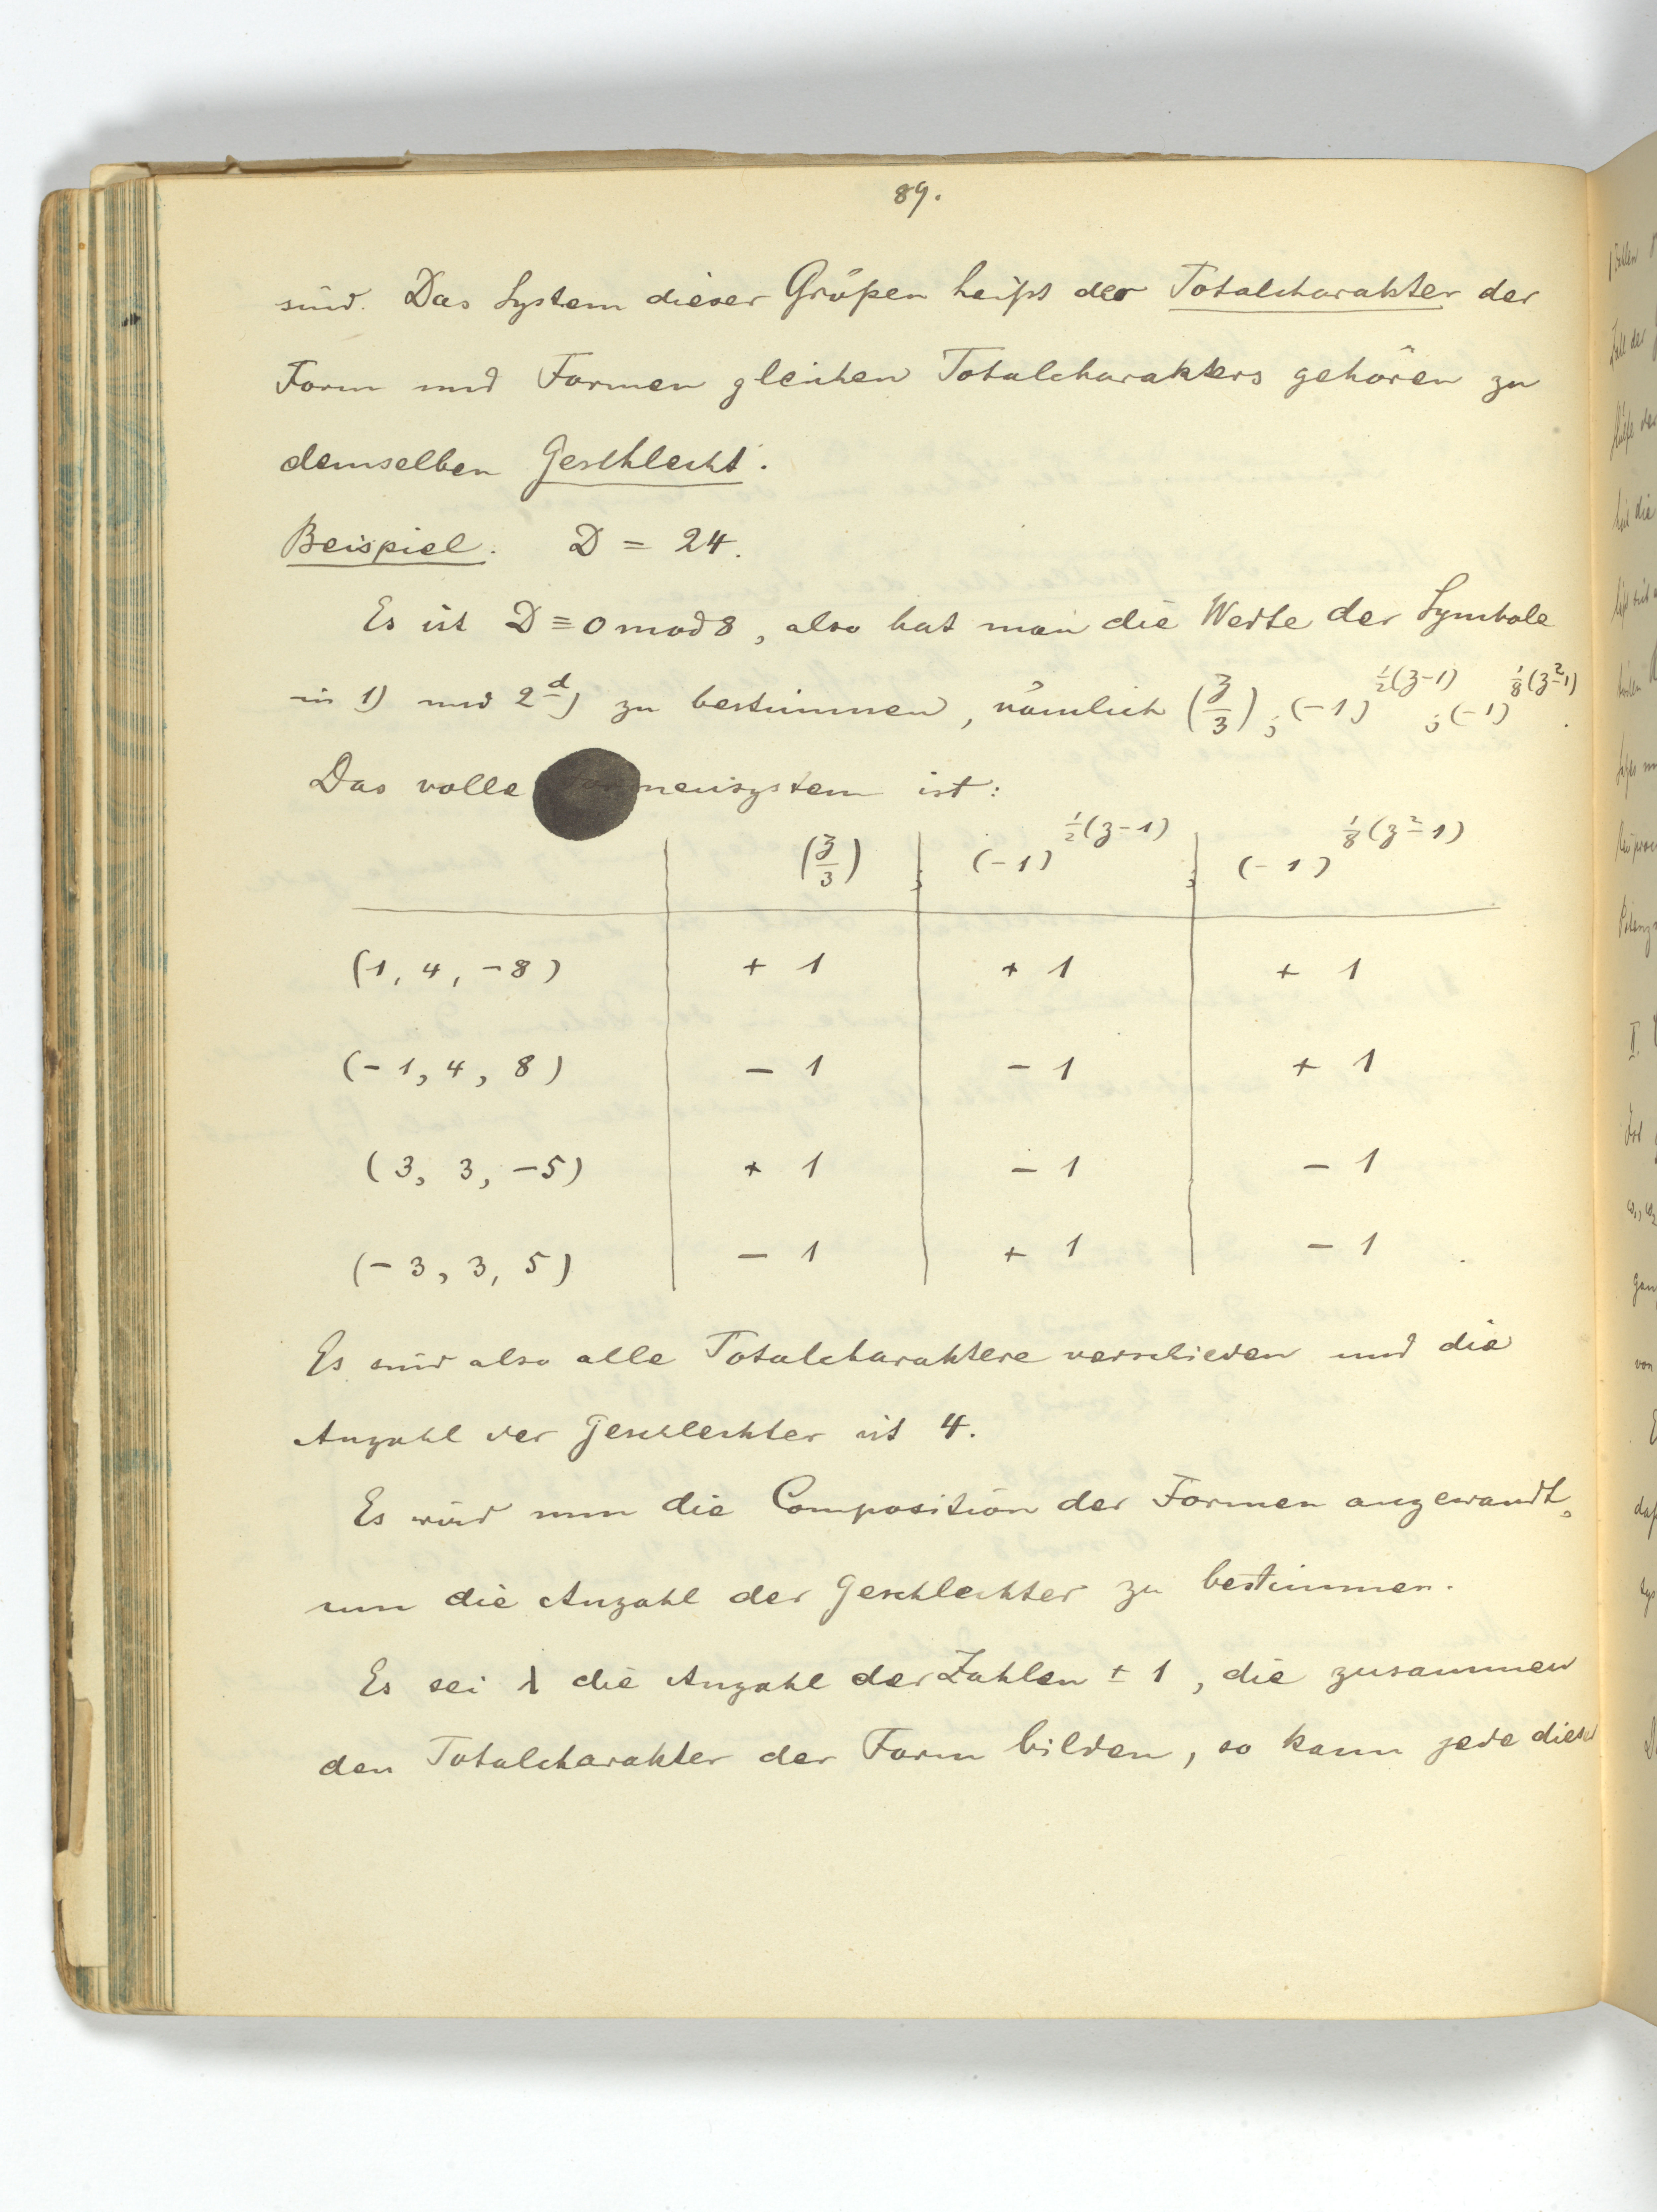 89.
sind. Das System dieser Größen heißt der Totalcharakter der
Form und Formen gleichen Totalcharakters gehören zu
demselben Geschlecht.
Beispiel. D = 24.
Es ist D ≡ 0 mod 8, also hat man die Werte der Symbole
in 1) und 2d) zu bestimmen, nämlich (z/3); (-1)^{½(z-1)}; (-1)^{⅛(z²-1)}.
Das volle mensystem ist:
(z/3) ; (-1)^{½(z-1)} ; (-1)^{⅛(z²-1)}
(1, 4, -8) + 1 + 1 + 1
(-1, 4, 8) - 1 - 1 + 1
(3, 3, -5) + 1 - 1 - 1
(-3, 3, 5) - 1 + 1 - 1
Es sind also alle Totalcharaktere verschieden und die
Anzahl der Geschlechter ist 4.
Es wird nun die Composition der Formen angewandt,
um die Anzahl der Geschlechter zu bestimmen.
Es sei λ die Anzahl der Zahlen ± 1, die zusammen
den Totalcharakter der Form bilden, so kann jede dieser